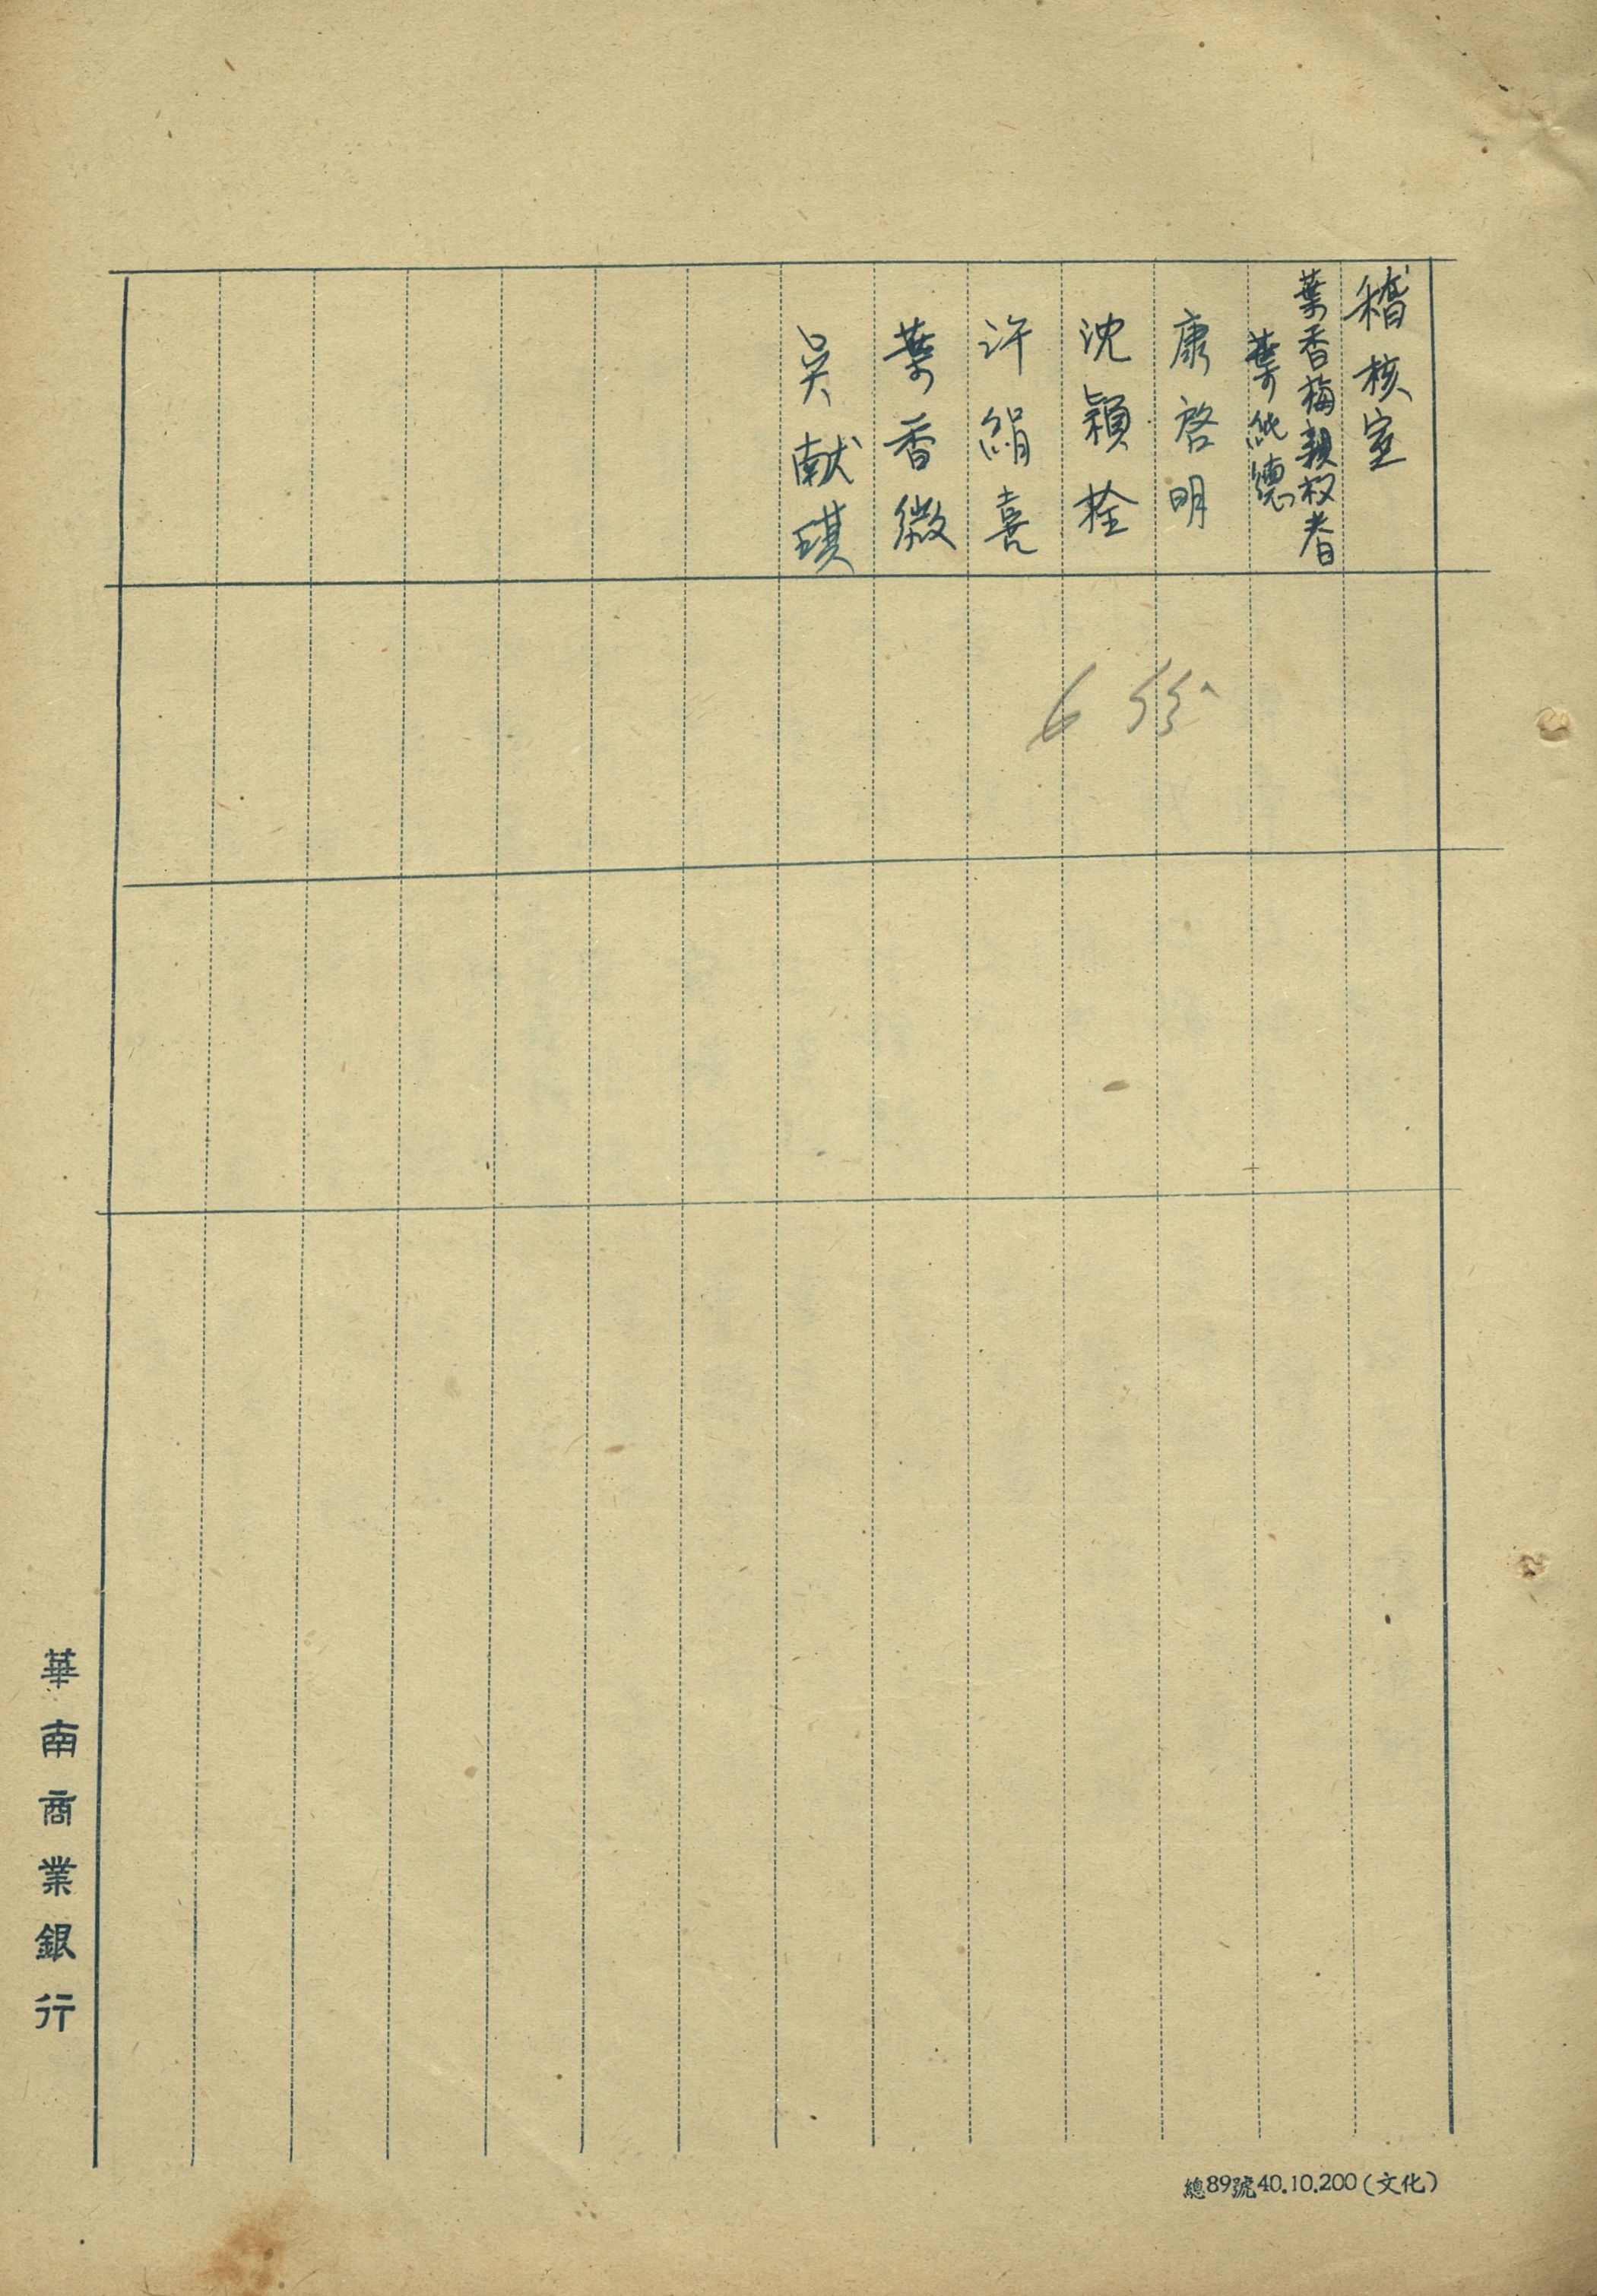 稽核室
葉香梅親权者
葉純德
康啓明
沈穎栓
許絹喜
葉香微
吳献琪
6
華南商業銀行
總89號40.10.200(文化)